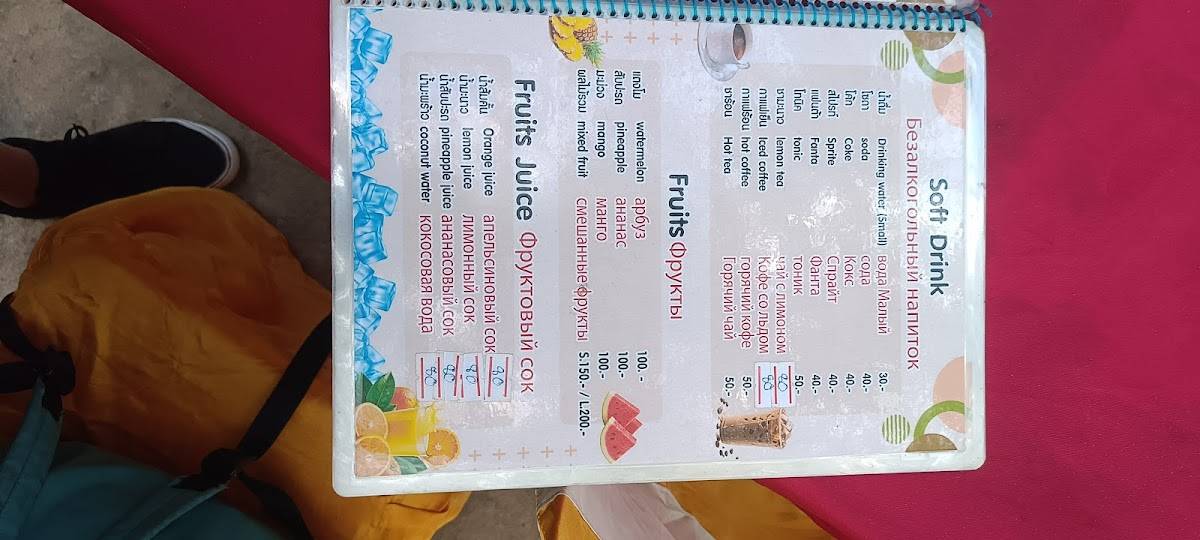 Soft Drink
Безалкогольный напиток
น้ำดื่ม Drinking water (Small) вода Малый 30.-
โซดา soda сода 40.-
โค้ก Coke Кокс 40.-
สไปรท์ Sprite Спрайт 40.-
แฟนต้า Fanta Фанта 40.-
โทนิค tonic тоник 50.-
ชามะนาว lemon tea чай с лимоном 80
กาแฟเย็น Iced coffee Кофе со льдом 80
กาแฟร้อน hot coffee горячий кофе 50.-
ชาร้อน Hot tea Горячий чай 50.-
Fruits Фрукты
แตงโม watermelon арбуз 100. -
สับปะรด pineapple ананас 100.-
มะม่วง mango манго 100.-
ผลไม้รวม mixed fruit смешанные фрукты S.150.- / L.200.-
Fruits Juice Фруктовый сок
น้ำส้มคั้น Orange juice апельсиновый сок 80
น้ำมะนาว lemon juice лимонный сок 80
น้ำสับปะรด pineapple juice ананасовый сок 80
น้ำมะพร้าว coconut water кокосовая вода 80